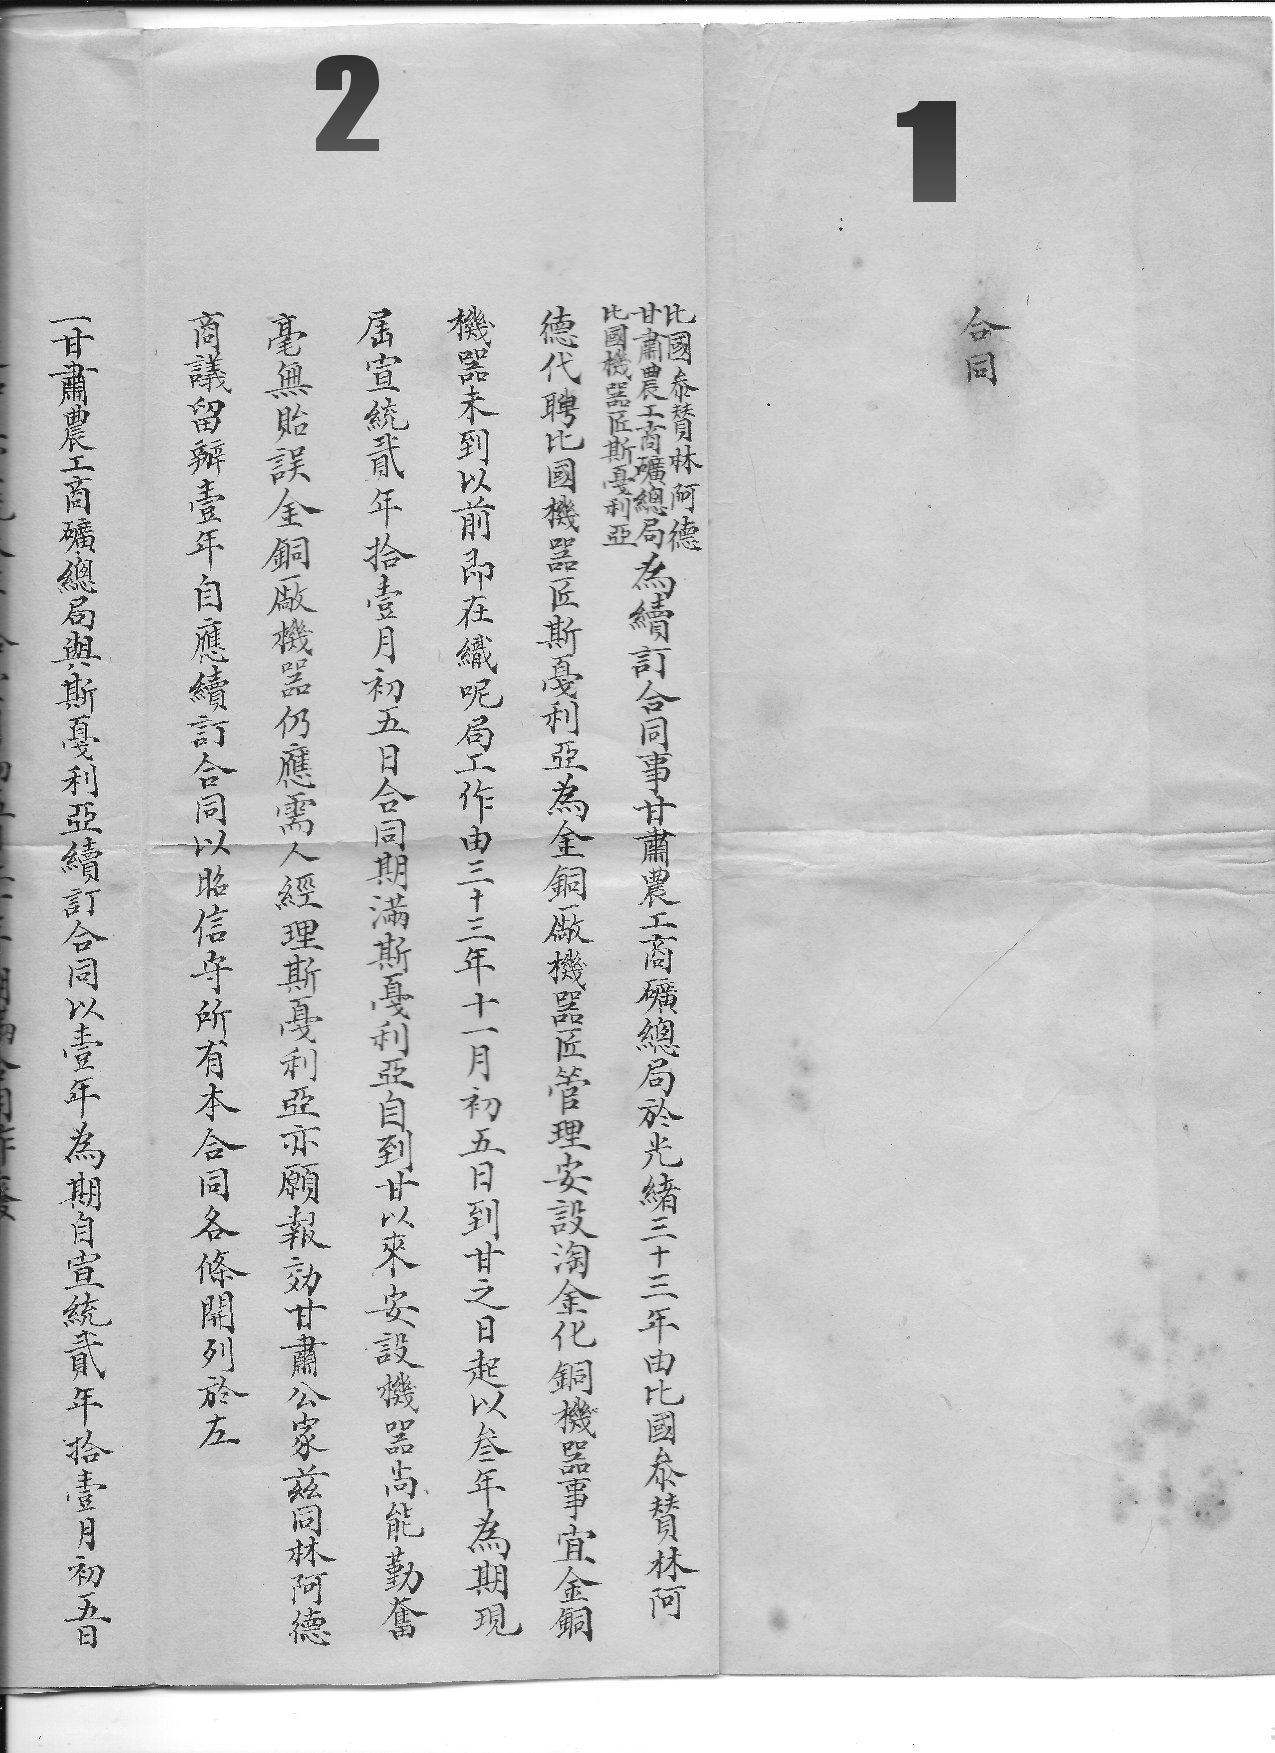 1
合同
2
比國叅贊林阿德
甘肅農工商礦總局為續訂合同事甘肅農工商礦總局於光緒三十三年由比國叅贊林阿
比國機器匠斯戞利亞
德代聘比國機器匠斯戞利亞為金銅厰機器匠管理安設淘金化銅機器事宜金銅
機器未到以前即在織呢局工作由三十三年十一月初五日到甘之日起以叁年為期現
屆宣統貳年拾壹月初五日合同期滿斯戞利亞自到甘以來安設機器尚能勤奮
毫無貽誤金銅厰機器仍應需人經理斯戞利亞亦願報効甘肅公家茲同林阿德
商議留辦壹年自應續訂合同以昭信守所有本合同各條開列於左
一甘肅農工商礦總局與斯戞利亞續訂合同以壹年為期自宣統貳年拾壹月初五日